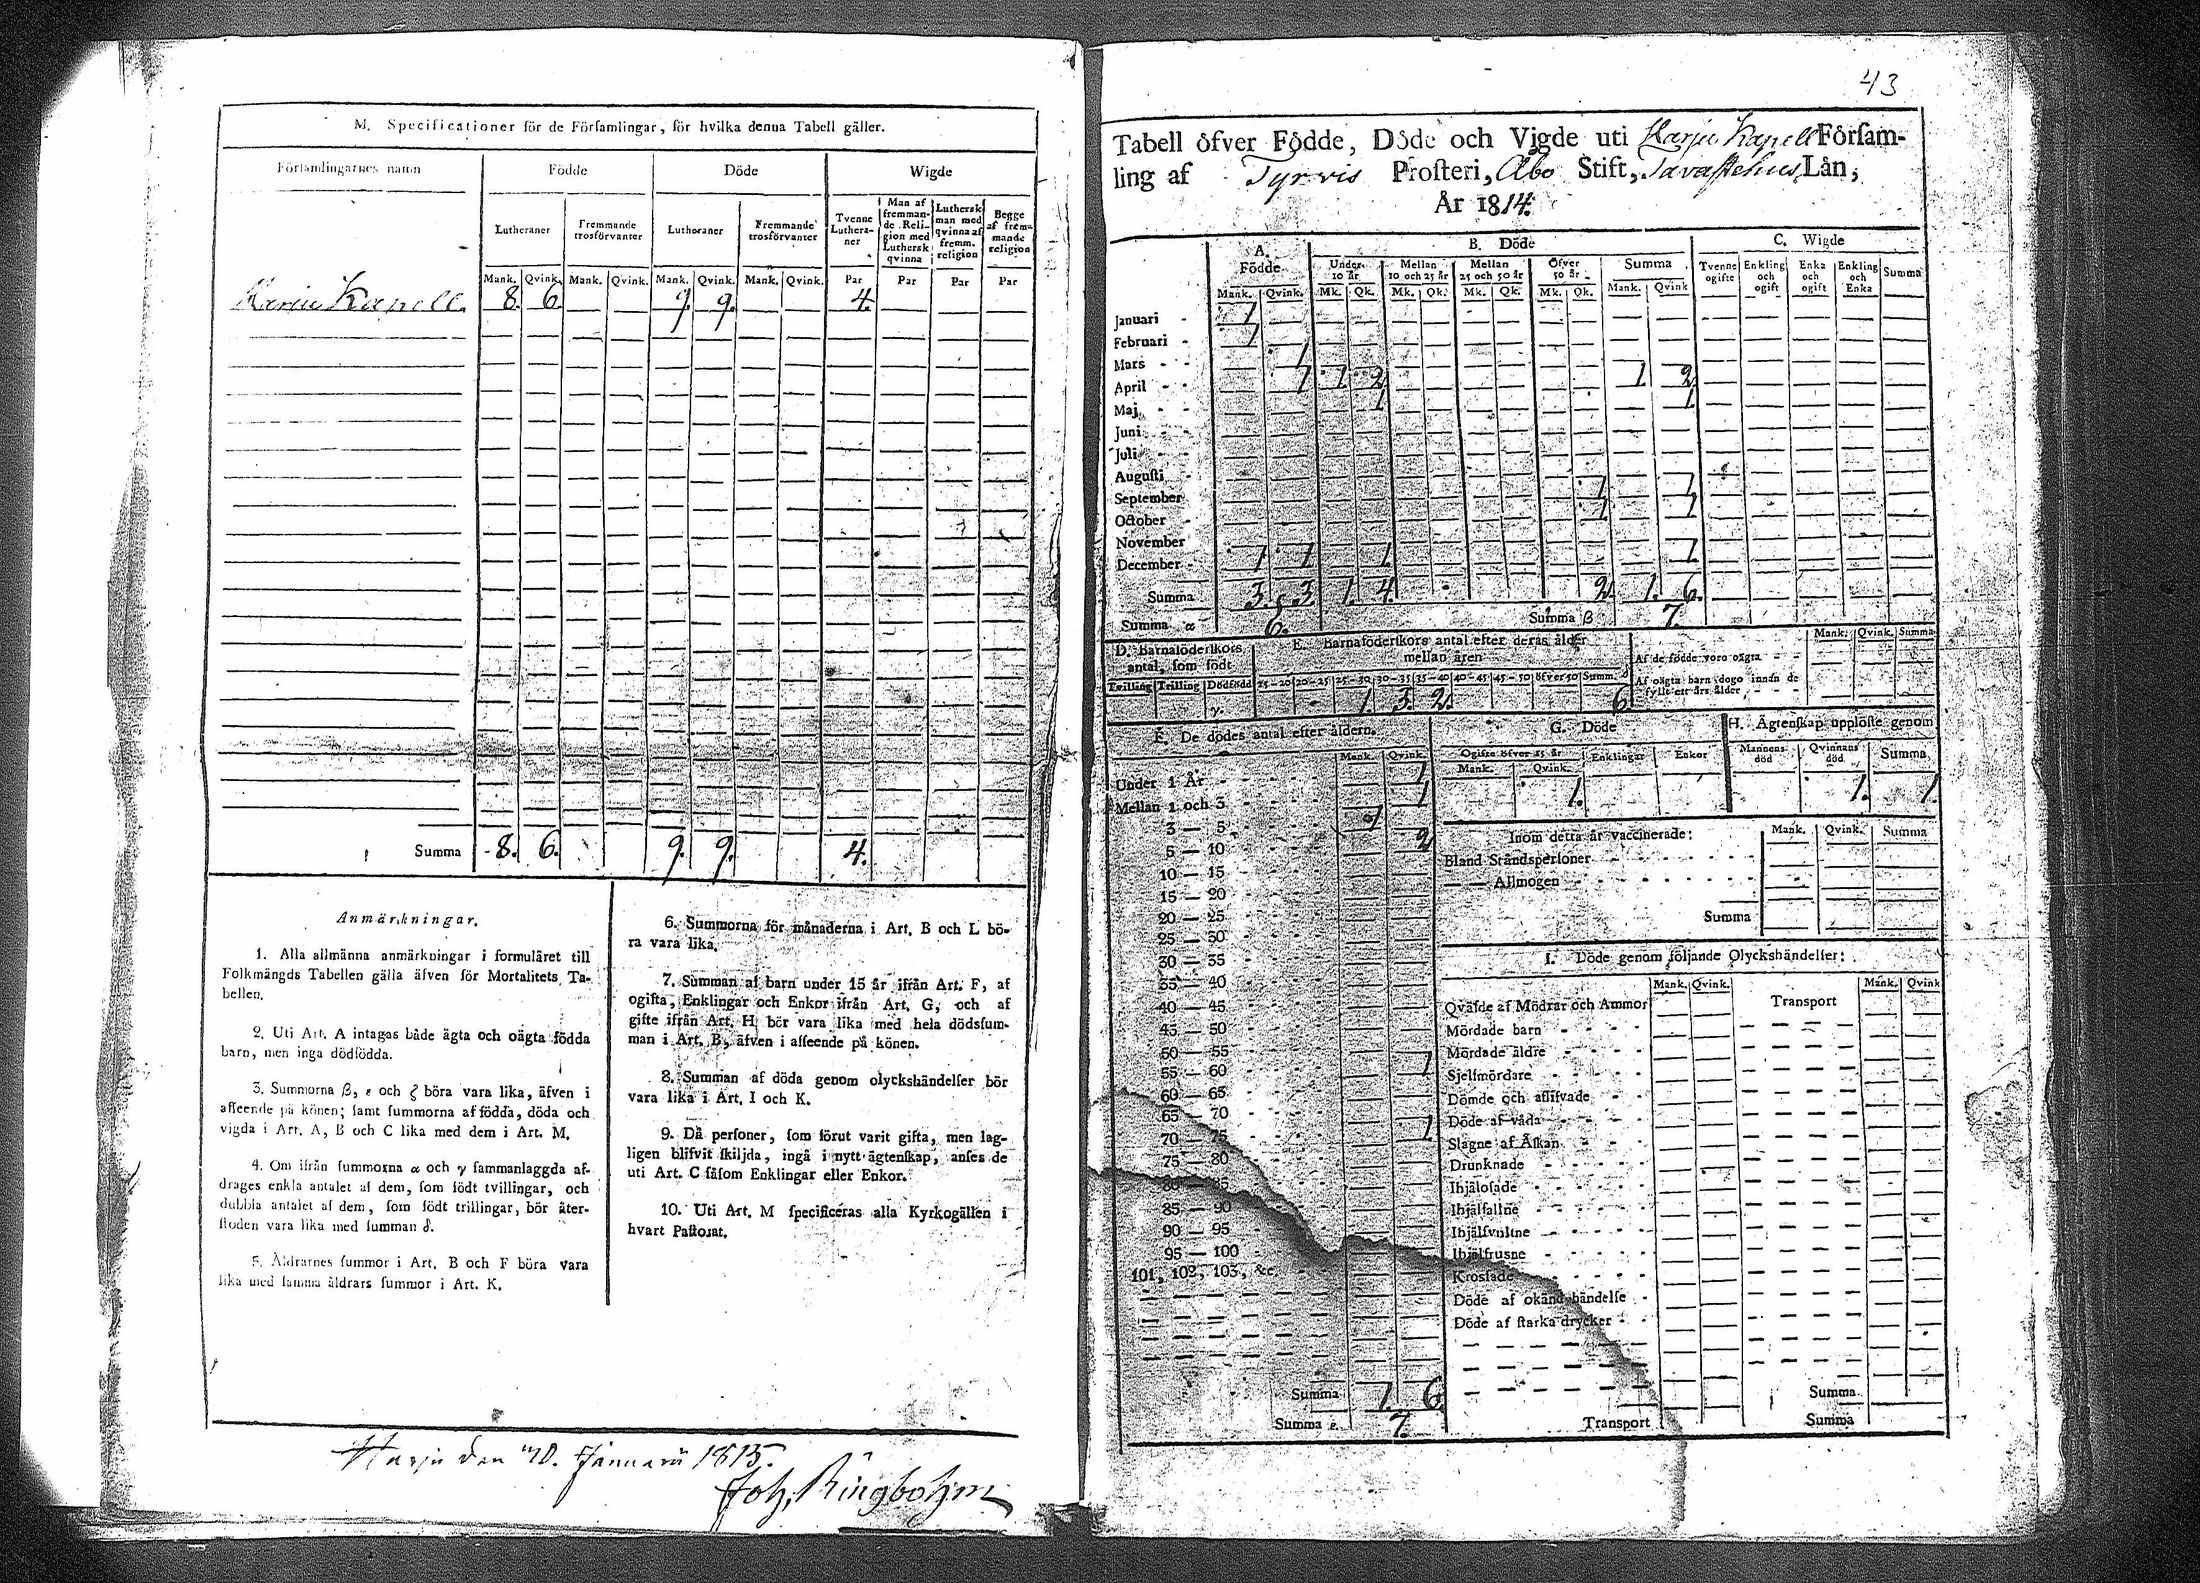 M. Specificationer för de Förſamlingar, för hvilka denna Tabell gäller.
Förſamlingarnes namn
Födde
Döde
Wigde
Lutheraner
Fremmande trosförvanter
Lutheraner
Fremmande trosförvanter
Tvenne Lutheraner
Man af fremmande Religion med Lutherſk qvinna
Lutherſk man med qvinna af fremm. religion
Begge af fremmande religion
Mank. Qvink. Mank. Qvink. Mank. Qvink. Mank. Qvink. Par Par Par Par
Harju Kapell. 8. 6. 9. 9. 4.
Summa 8. 6. 9. 9. 4.
Anmärkningar.
1. Alla allmänna anmärkningar i formuläret till
Folkmängds Tabellen gälla äfven för Mortalitets Ta-
bellen.
2. Uti Art. A intagas både ägta och oägta födda
barn, men inga dödfödda.
3. Summorna β, ε och ζ böra vara lika, äfven i
afſeende på könen; ſamt ſummorna af födda, döda och
vigda i Art. A, B och C lika med dem i Art. M.
4. Om ifrån ſummorna α och γ ſammanlaggda af-
drages enkla antalet af dem, ſom födt tvillingar, och
dubbla antalet af dem, ſom födt trillingar, bör åter-
ſtoden vara lika med ſumman δ.
5. Åldrarnes ſummor i Art. B och F böra vara
lika med ſamma åldrars ſummor i Art. K.
6. Summorna för månaderna i Art. B och L bö-
ra vara lika.
7. Summan af barn under 15 år ifrån Art. F, af
ogifta, Enklingar och Enkor ifrån Art. G, och af
gifte ifrån Art. H bör vara lika med hela dödsſum-
man i Art. B, äfven i afſeende på könen.
8. Summan af döda genom olyckshändelſer bör
vara lika i Art. I och K.
9. Då perſoner, ſom förut varit gifta, men lag-
ligen blifvit ſkiljda, ingå i nytt ägtenſkap, anſes de
uti Art. C ſåſom Enklingar eller Enkor.
10. Uti Art. M ſpecificeras alla Kyrkogällen i
hvart Paſtorat.
Harju den 20. Januarii 1815.
Joh. Ringbohm
43
Tabell öfver Födde, Döde och Vigde uti Harju Kapell Förſam-
ling af Tyrvis Proſteri, Åbo Stift, Tavaſtehus Län,
År 1814.
A. Födde
B. Döde
C. Wigde
Under 10 år
Mellan 10 och 25 år
Mellan 25 och 50 år
Öfver 50 år
Summa
Tvenne ogifte
Enkling och ogift
Enka och ogift
Enkling och Enka
Summa
Mank. Qvink. Mk. Qk. Mk. Qk. Mk. Qk. Mk. Qk. Mank. Qvink
Januari 1
Februari 1
Mars 1
April 1 1 2 1 2
Maj 1 1
Juni
Juli
Auguſti
September 1 1
October 1 1
November
December 1 1 1 1
Summa 3. 3 1. 4. 2 1. 6.
Summa α 6. Summa β 7.
D. Barnaföderſkors antal, ſom födt
E. Barnaföderſkors antal efter deras ålder mellan åren
Mank. Qvink. Summa
Tvilling Trilling Dödfödd 15–20 20–25 25–30 30–35 35–40 40–45 45–50 öfver 50 Summ. δ
γ. 1. 3. 2. 6.
Af de födde voro oägta
Af oägta barn dogo innan de fyllt ett års ålder
F. De dödes antal efter åldern.
Mank. Qvink.
Under 1 År 1
Mellan 1 och 3 1
3 — 5 1
5 — 10 2
10 — 15
15 — 20
20 — 25
25 — 30
30 — 35
35 — 40
40 — 45
45 — 50
50 — 55 1
55 — 60
60 — 65
65 — 70 1
70 — 75
75 — 80
80 — 85
85 — 90
90 — 95
95 — 100
101, 102, 103, &c.
Summa 1. 6
Summa ε 7.
G. Döde
Ogifte öfver 15 år
Enklingar
Enkor
Mank. Qvink.
1.
H. Ägtenſkap upplöſte genom
Mannens död
Qvinnans död
Summa
1. 1.
Inom detta år vaccinerade:
Mank. Qvink. Summa
Bland Ståndsperſoner
— — Allmogen
Summa
I. Döde genom följande Olyckshändelſer:
Mank. Qvink. Transport Mank. Qvink
Qväfde af Mödrar och Ammor
Mördade barn
Mördade äldre
Sjelfmördare
Dömde och aflifvade
Döde af våda
Slagne af Åſkan
Drunknade
Ihjäloſade
Ihjälfallne
Ihjälſvultne
Ihjälfrusne
Kroſſade
Döde af okänd händelſe
Döde af ſtarka drycker
Summa
Transport Summa